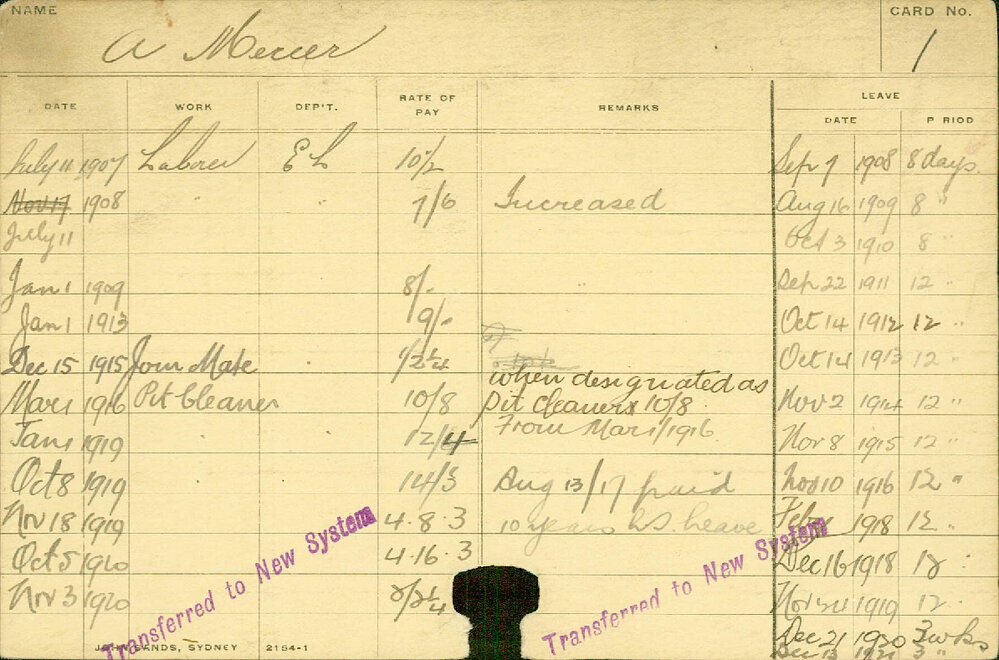 NAME
CARD No.
A Mercer
1
DATE WORK DEP'T. RATE OF PAY REMARKS LEAVE
DATE P RIOD
July 11 1907 Laborer E L Sep 7 1908 8 days
Nov 17 1908 " " 7/6 Increased Aug 16 1909 8 "
July 11 Oct 3 1910 8 "
Jan 1 1909 8/- Sep 22 1911 12 "
Jan 1 1913 9/- Oct 14 1912 12 "
Dec 15 1915 Mate Oct 14 1913 12 "
when designated as
Mar 1 1916 Pit Cleaner 10/8 Pit Cleaner 10/8 Nov 2 1914 12 "
From Mar 1/1916
Jan 1 1919 12/4 Nov 8 1915 12 "
Oct 8 1919 14/3 Aug 13/17 paid Nov 10 1916 12 "
Nov 18 1919 4.8.3 10 years Leave Feb 1918 12 "
Oct 5 1920 4.16.3 Dec 16 1918 12 "
Nov 3 1920 1919 12 "
Dec 21 1920 3 wks
Dec 13 1921 3 "
Transferred to New System
Transferred to New System
JOHN SANDS, SYDNEY 2154-1